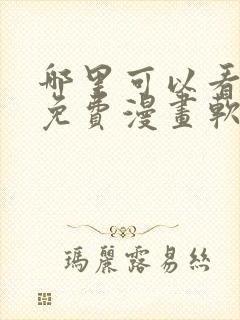 哪里可以看
免費漫畫軟
瑪麗露易絲